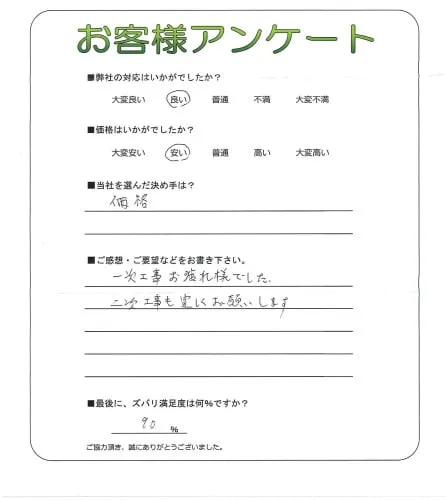 お客様アンケート
■弊社の対応はいかがでしたか?
大変良い 良い 普通 不満 大変不満
■価格はいかがでしたか?
大変安い 安い 普通 高い 大変高い
■当社を選んだ決め手は?
価格
■ご感想・ご要望などをお書き下さい。
一次工事お疲れ様でした.
二次工事も宜しくお願いします
■最後に、ズバリ満足度は何%ですか?
90 %
ご協力頂き、誠にありがとうございました。